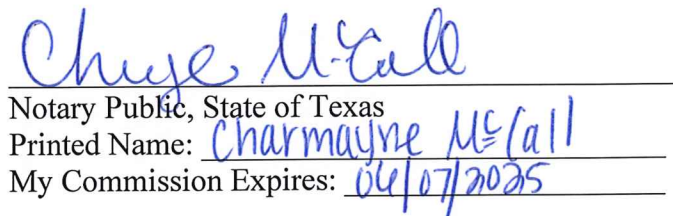 McCall
Notary Public, State of Texas
Printed Name: Charmayne McCall
My Commission Expires: 06/07/2025